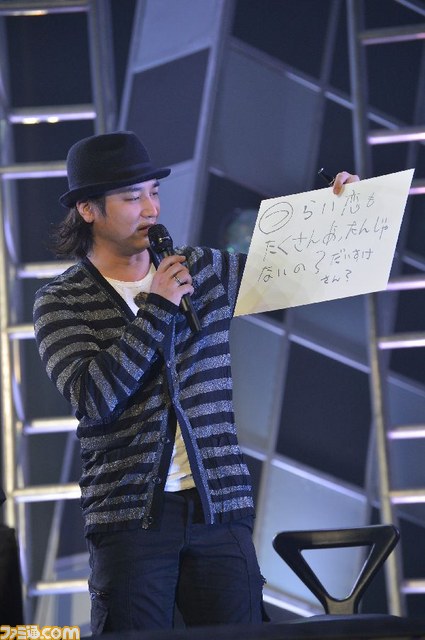 つらい恋も
たくさんあったんじゃ
ないの？だいすけ
さん？
ファミ通.com
www.famitsu.com